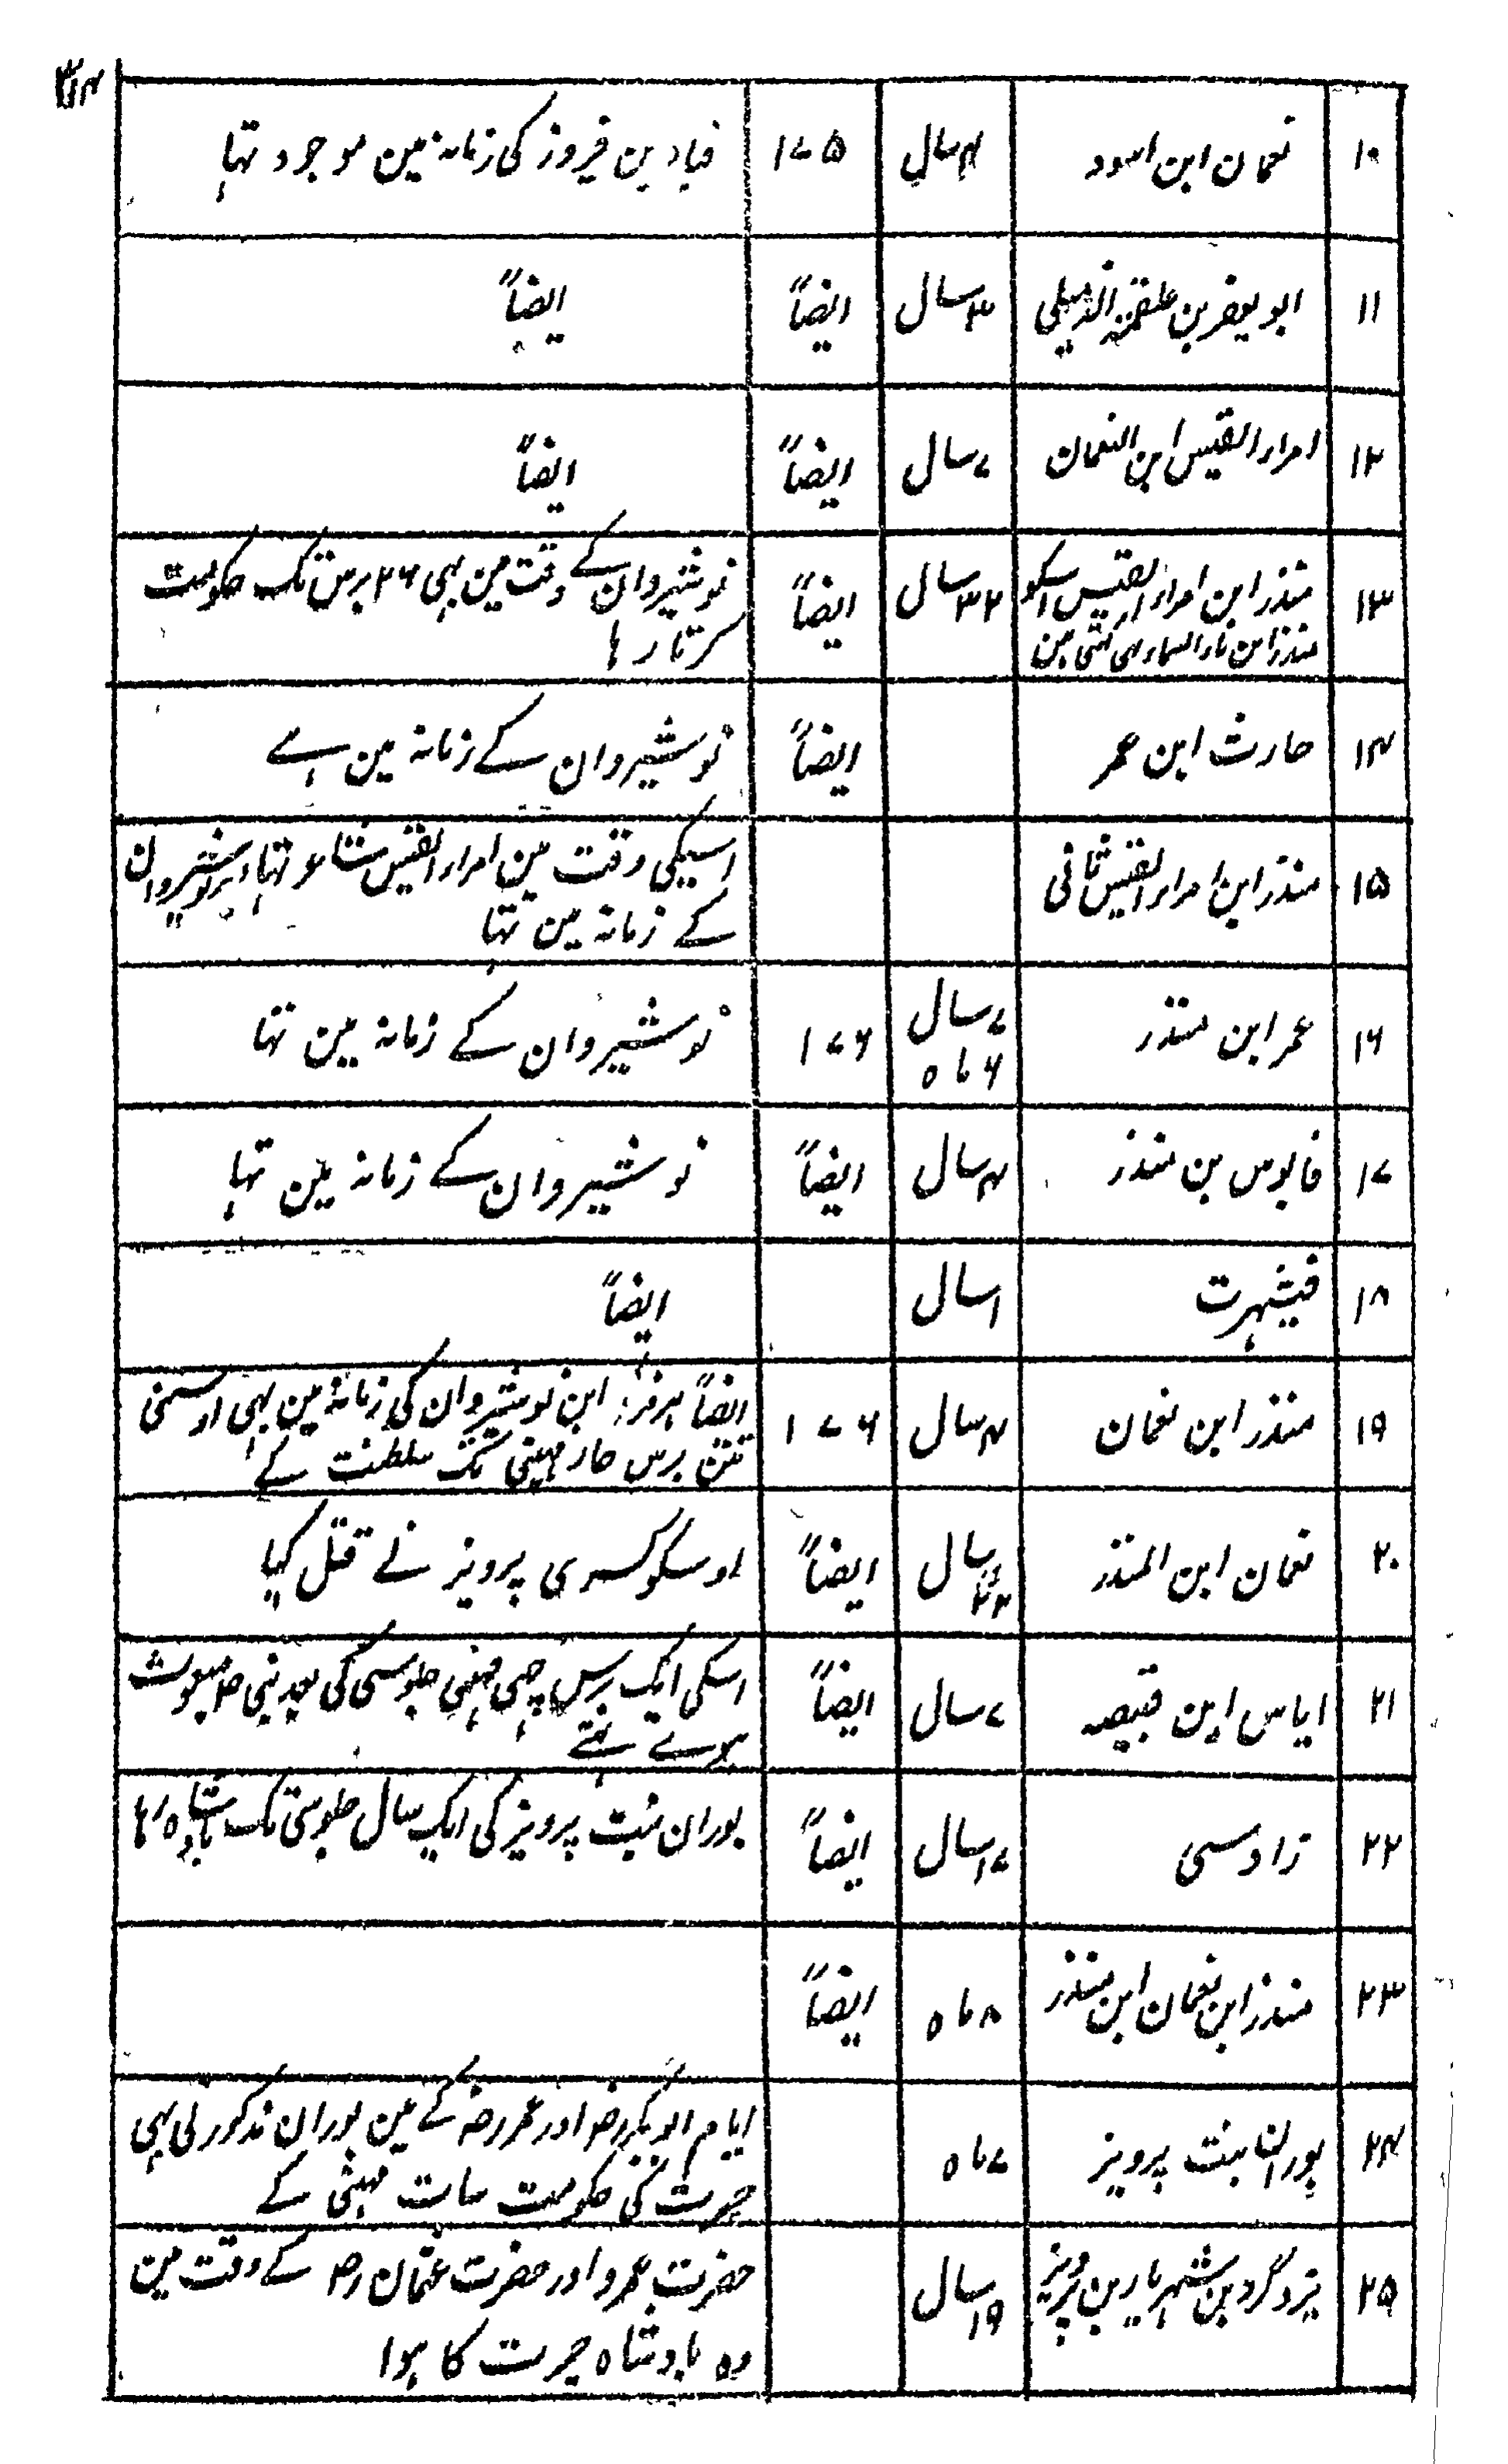 ۳۱۴
۱۰ نعمان ابن اسود ۴سال ۱۷۵ قباد بن فیروز کی زمانہ مین موجود تہا
۱۱ ابو یعفر بن علقمۃ الذمیلی ۳سال ایضاً ایضاً
۱۲ امراء القیس ابن النعمان ۷سال ایضاً ایضاً
۱۳ منذر ابن امراء القیس اسکو ۳۲سال ایضاً نوشیروان کے وقت مین بہی ۲۶ برس تک حکومت
منذر ابن ماء السماء بہی کہتی ہین کرتا رہا
۱۴ حارث ابن عمر ایضاً نوشیروان کے زمانہ مین ہے
۱۵ منذر ابن امراء القیس ثانی اسیکی وقت مین امراء القیس شاعر تہا نوشیروان
کے زمانہ مین تہا
۱۶ عمر ابن منذر ۷سال ۱۷۶ نوشیروان کے زمانہ مین تہا
۶ ماہ
۱۷ قابوس بن منذر ۴سال ایضاً نوشیروان کے زمانہ مین تہا
۱۸ فیشہرت ۱سال ایضاً
۱۹ منذر ابن نعمان ۴سال ۱۷۶ ایضاً ہرمز ابن نوشیروان کی زمانہ مین بہی اوسنی
تین برس چار مہینی تک سلطنت کے
۲۰ نعمان ابن المنذر ۲۲سال ایضاً اوسکو کسری پرویز نے قتل کیا
۲۱ ایاس ابن قبیصہ ۷سال ایضاً اسکی ایک برس چہی مہینی جلوسی کی بعد نبی صہ مبعوث
ہوے تہے
۲۲ زادسی ۱۷سال ایضاً بوران بنت پرویز کی ایک سال جلوسی تک بادشاہ رہا
۲۳ منذر ابن نعمان ابن منذر ۸ماہ ایضاً
۲۴ پوران بنت پرویز ۷ماہ ایام ابوبکر رضہ اور عمر رضہ کے مین بوران مذکور نی بہی
حیرت کی حکومت سات مہینی کے
۲۵ یزدگرد بن شہریار بن پرویز ۱۹سال حضرت عمر و اور حضرت عثمان رضہ کے وقت مین
وہ بادشاہ حیرت کا ہوا